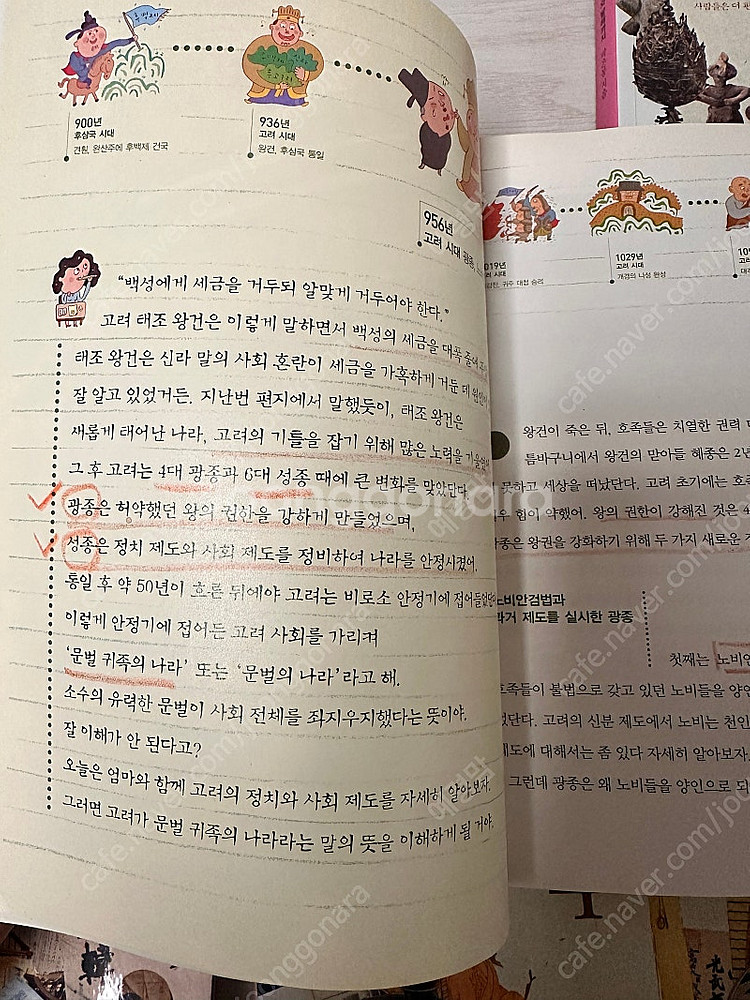 후백제
900년
후삼국 시대
견훤, 완산주에 후백제 건국
936년
고려 시대
왕건, 후삼국 통일
956년
고려 시대 광종,
"백성에게 세금을 거두되 알맞게 거두어야 한다."
고려 태조 왕건은 이렇게 말하면서 백성의 세금을 대폭 줄여
태조 왕건은 신라 말의 사회 혼란이 세금을 가혹하게 거둔 데
잘 알고 있었거든. 지난번 편지에서 말했듯이, 태조 왕건은
새롭게 태어난 나라, 고려의 기틀을 잡기 위해 많은 노력을
그 후 고려는 4대 광종과 6대 성종 때에 큰 변화를 맞았단다.
광종은 허약했던 왕의 권한을 강하게 만들었으며,
성종은 정치 제도와 사회 제도를 정비하여 나라를 안정시켰어.
통일 후 약 50년이 흐른 뒤에야 고려는 비로소 안정기에 접어들었단다
이렇게 안정기에 접어든 고려 사회를 가리켜
'문벌 귀족의 나라' 또는 '문벌의 나라'라고 해.
소수의 유력한 문벌이 사회 전체를 좌지우지했다는 뜻이야.
잘 이해가 안 된다고?
오늘은 엄마와 함께 고려의 정치와 사회 제도를 자세히 알아보자.
그러면 고려가 문벌 귀족의 나라라는 말의 뜻을 이해하게 될 거야.
사람들은 더
019년
려 시대
귀주 대첩 승리
1029년
고려 시대
개경의 나성 완성
왕건이 죽은 뒤, 호족들은 치열한 권력
틈바구니에서 왕건의 맏아들 혜종은 2년
못하고 세상을 떠났단다. 고려 초기에는 호족
우 힘이 약했어. 왕의 권한이 강해진 것은 4
종은 왕권을 강화하기 위해 두 가지 새로운
노비안검법과
과거 제도를 실시한 광종
첫째는 노비안
호족들이 불법으로 갖고 있던 노비들을 양인
었단다. 고려의 신분 제도에서 노비는 천인
제도에 대해서는 좀 있다 자세히 알아보자.
그런데 광종은 왜 노비들을 양인으로 되
joonggonara
cafe.naver.com/joonggonara